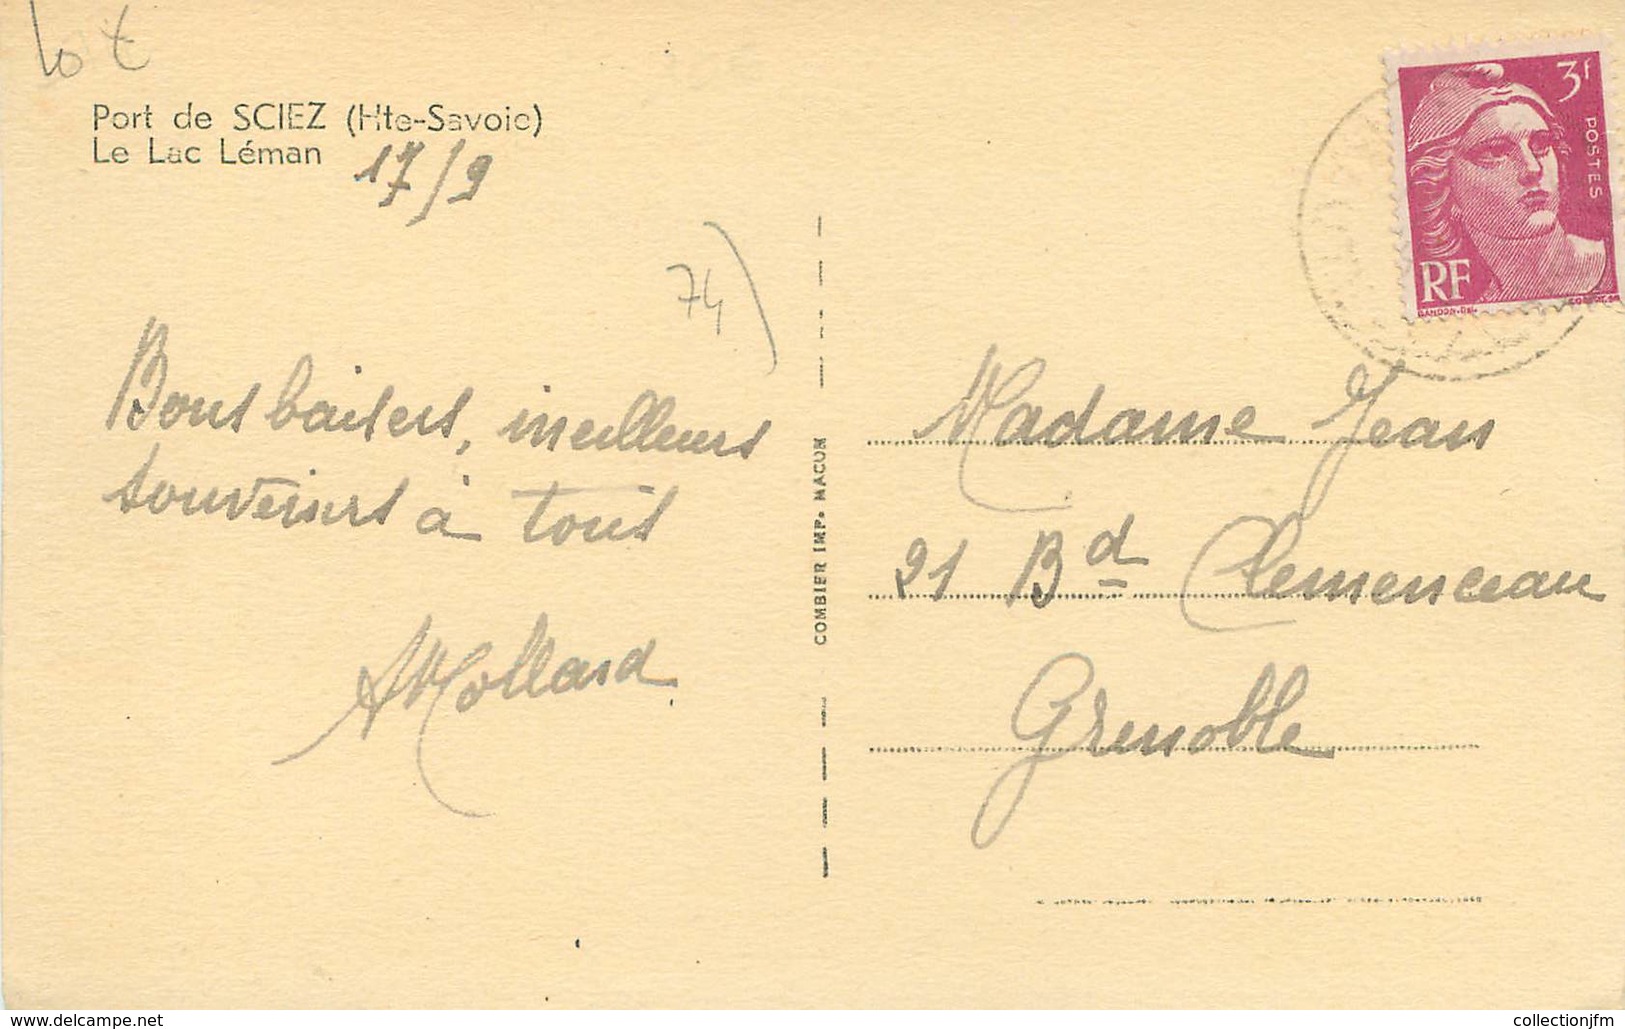 lot
Port de SCIEZ (Hte-Savoie)
Le Lac Léman
17/9
74)
Bons baisers, meilleurs
souvenirs à tous
AMollard
COMBIER IMP. MACON
3f
POSTES
RF
GANDON-DEL
Madame Jean
21 Bd Clemenceau
Grenoble
www.delcampe.net
collectionjfm